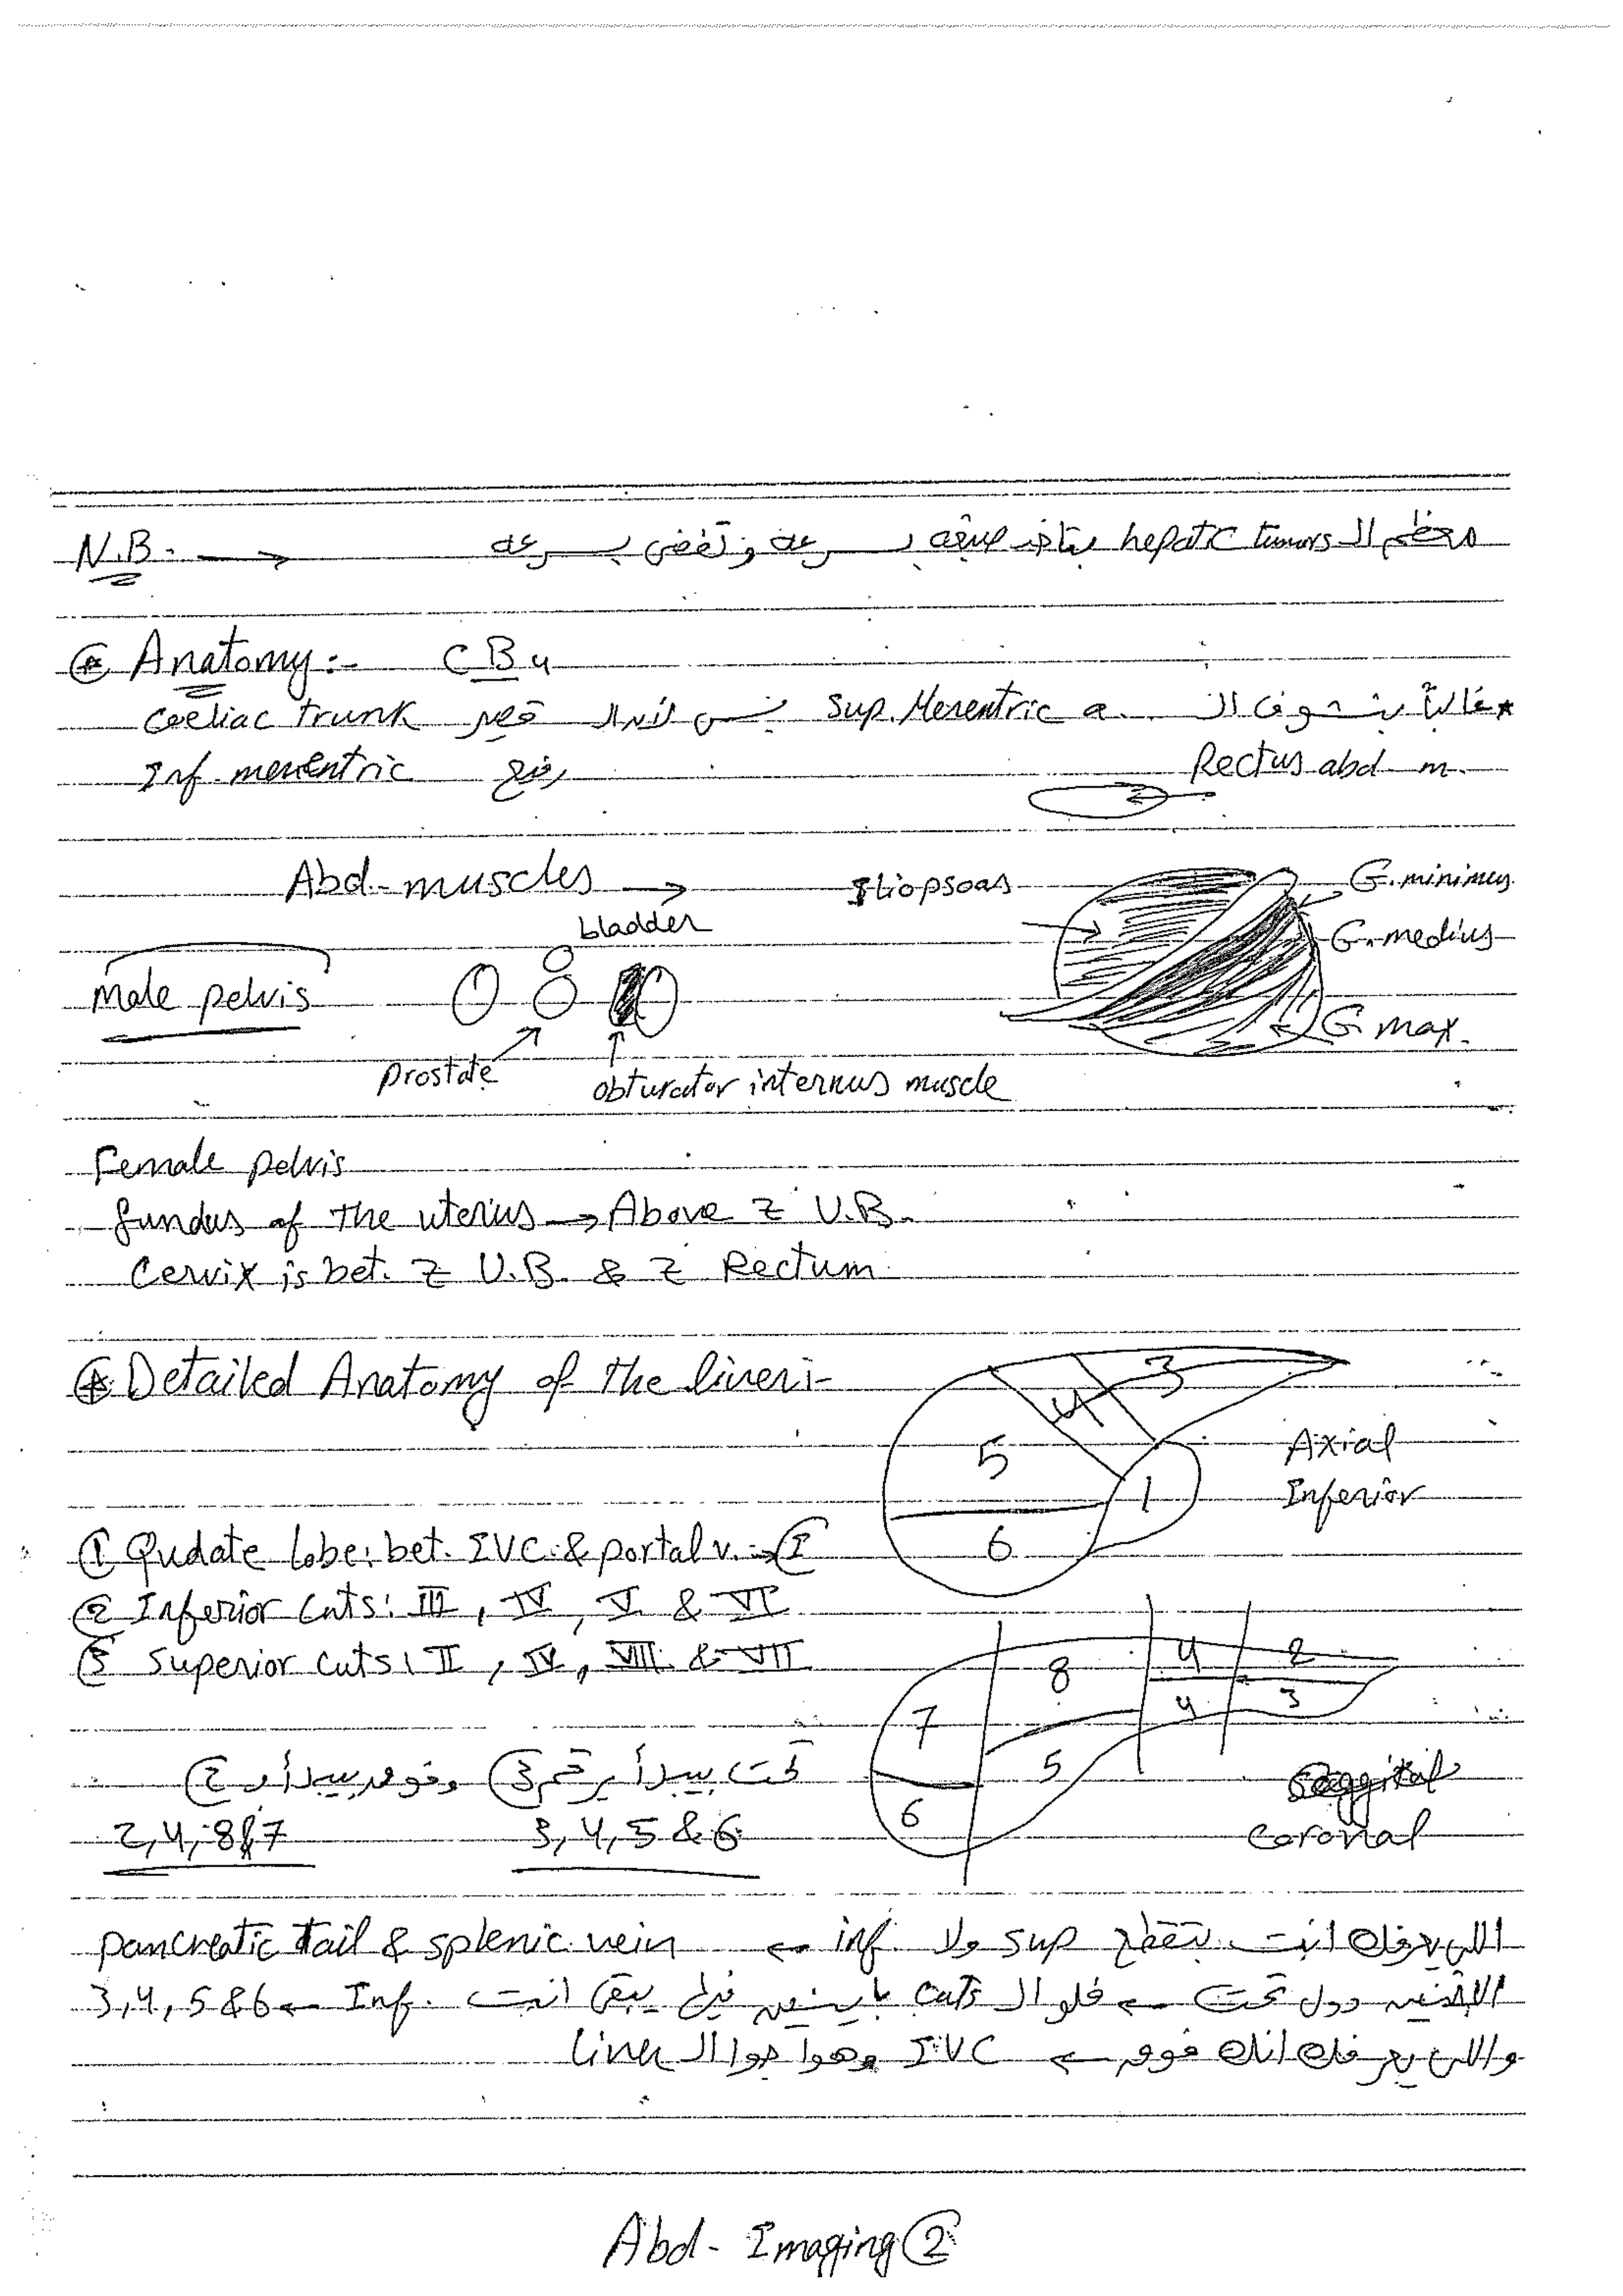 N.B. → معظم ال hepatic tumors بتاخد صبغه بسرعه وتفضى بسرعه
Anatomy:- CB4
* غالباً بنشوف ال Sup. Mesentric a. بس لأن ال قصير coeliac trunk
Inf mesentric رفيع
Rectus abd- m.
Abd-muscles →
Iliopsoas
G. minimus
G. medius
G. max.
bladder
Male pelvis
Prostate
obturator internus muscle
Female pelvis
fundus of the uterus → Above z U.B.
Cervix is bet. z U.B. & z Rectum
Detailed Anatomy of the liver:-
3
4
5
1
6
Axial
Inferior
① Qudate lobe: bet. IVC & portal v. → Ⅰ
② Inferior Cuts: III, IV, V & VI
③ Superior Cuts: II, IV, VIII & VII
8 4 2
7 4 3
5
6
Coronal
تحت بيبدأ برقم ③ وفوق بيبدأ ب ②
2,4,8&7 3,4,5&6
اللى يعرفك انت بتقطع sup ولا inf. ← pancreatic tail & splenic vein
الاتنين دول تحت ← فلو ال cuts باينين فيه يبقى انت Inf. ← 3,4,5&6
واللى يعرفك انك فوق ← IVC وهوا جوا ال liver
Abd- Imaging ②